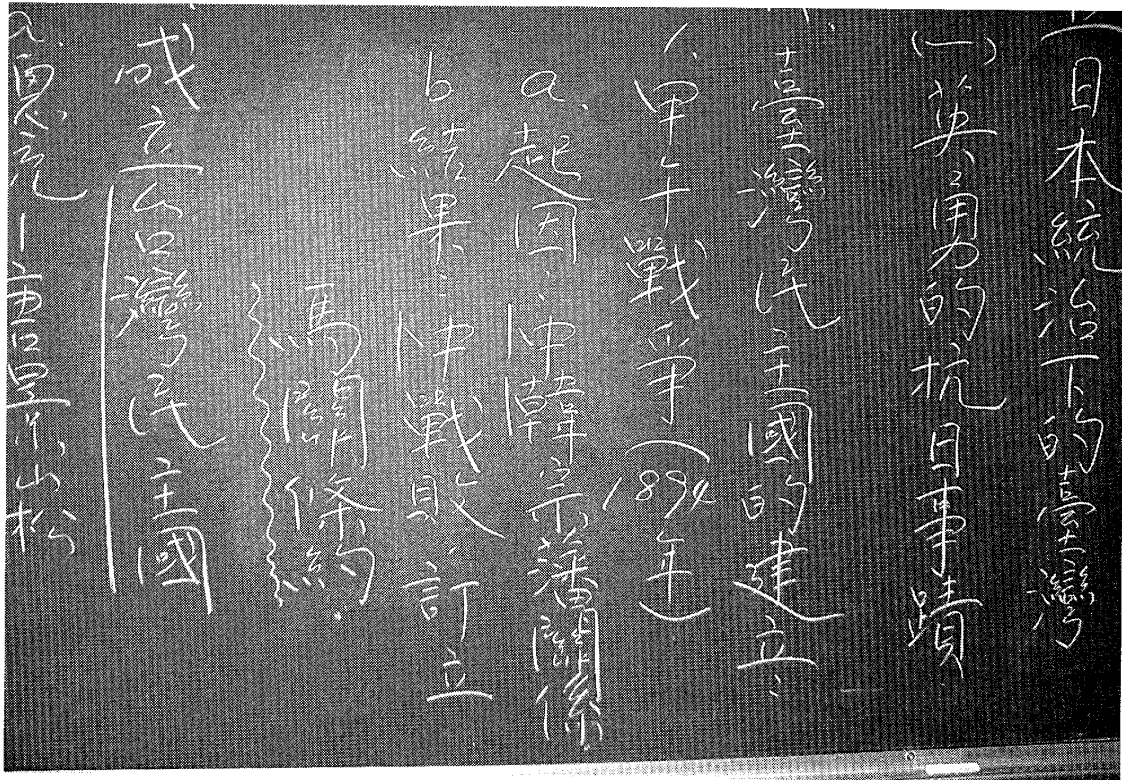 日本統治下的臺灣
(一)英勇的抗日事蹟
臺灣民主國的建立:
1.甲午戰爭(1894年)
a.起因:中韓宗藩關係.
b.結果:中戰敗.訂立
馬關條約.
成立台灣民主國
a.總統—唐景崧